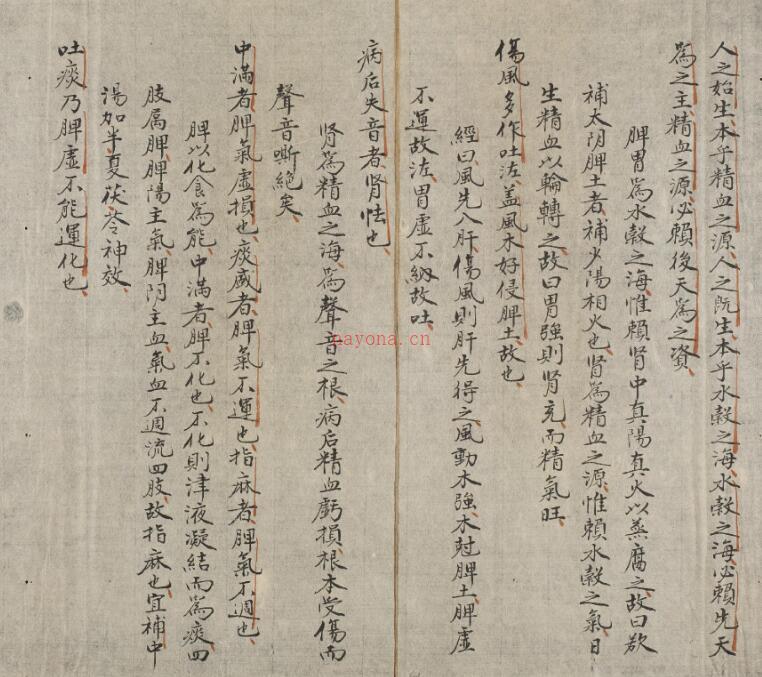 人之始生、本乎精血之源、人之既生、本乎水穀之海、水穀之海、必賴先天
為之主、精血之源、必賴後天為之資、
脾胃為水穀之海、惟賴肾中真陽真火以蒸腐之、故曰、欲
補太阴脾土者、補少陽相火也、肾為精血之源、惟賴水穀之氣、日
生精血以輪轉之、故曰胃強則肾充、而精氣旺、
傷風多作吐泻、盖風木好侵脾土故也、
經曰、風先入肝、傷風則肝先得之、風動木強、木尅脾土、脾虚
不運故泻、胃虚不納故吐、
病后失音者、肾怯也、
肾為精血之海、為聲音之根、病后精血虧損、根本受傷、而
聲音嘶絶矣、
中滿者、脾氣虚損也、痰盛者、脾氣不運也、指麻者、脾氣不週也、
脾以化食為能、中滿者、脾不化也、不化則津液凝結而為痰、四
肢属脾、脾陽主氣、脾阴主血、氣血不週流四肢、故指麻也、宜補中
湯加半夏茯苓神效、
吐痰乃脾虚不能運化也、
nayona.cn